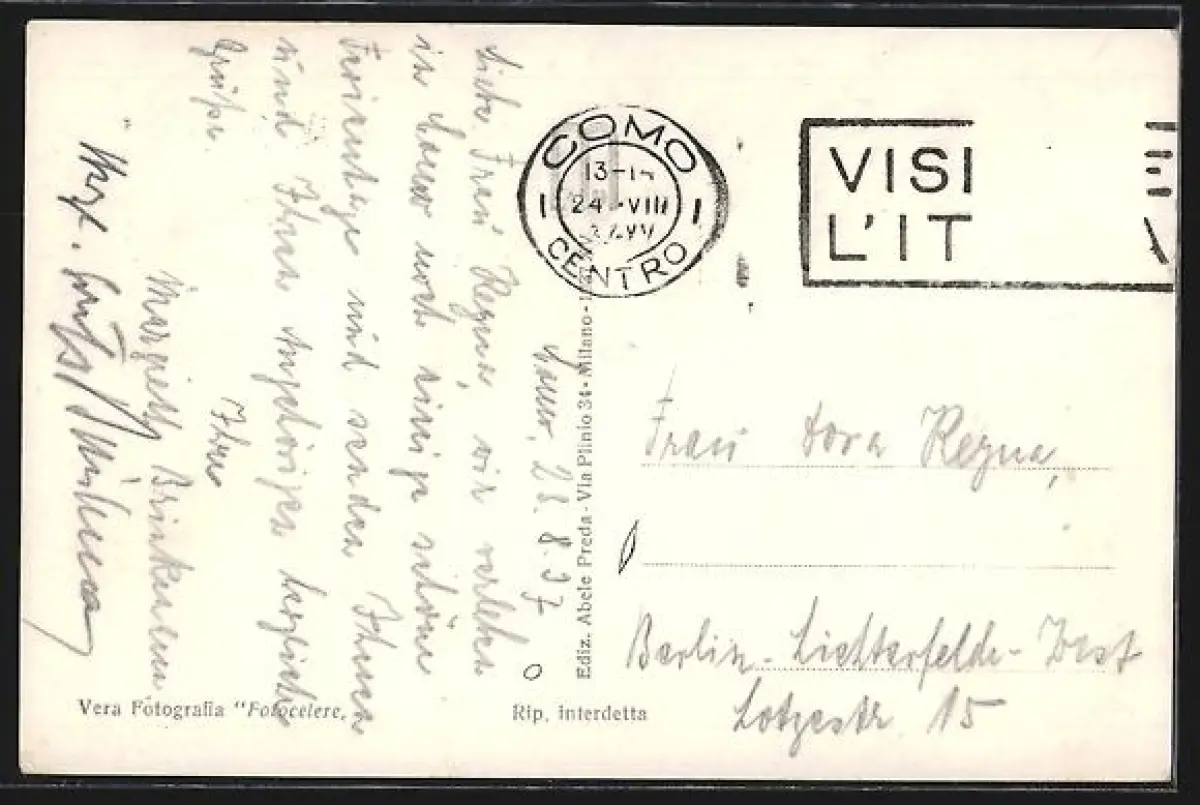 COMO
13-14
24-VIII
CENTRO
VISI
L'IT
Como, 23.8.37
Liebe Frau Regna, wir verleben
in Como noch einige schöne
Ferientage und senden Ihnen
und Ihren Angehörigen herzliche
Grüße.
Ihre
Margreth Brinkmann
Frau Dora Regna,
Berlin-Lichterfelde-West
Lotzestr. 15
Ediz. Abele Preda - Via Plinio 34 - Milano -
Vera Fotografia "Fotocelere"
Rip. interdetta